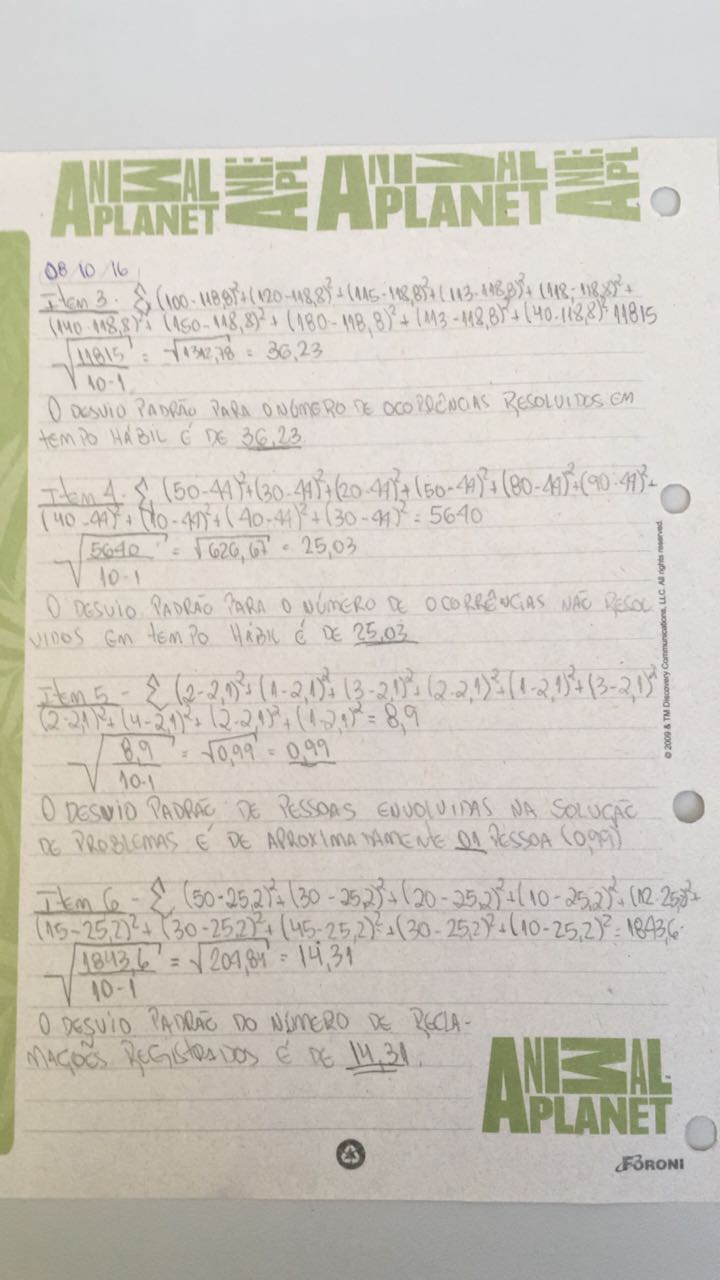 ANIMAL PLANET ANI APL ANIMAL PLANET ANI APL
08/10/16
Item 3 - Σ (100-118,8)²+(120-118,8)²+(115-118,8)²+(113-118,8)²+(118-118,8)²+
(140-118,8)²+(150-118,8)²+(180-118,8)²+(113-118,8)²+(40-118,8)²=11815
√11815/10-1 = √1312,78 = 36,23
O DESVIO PADRÃO PARA O NÚMERO DE OCORRÊNCIAS RESOLVIDOS EM
TEMPO HÁBIL É DE 36,23
Item 4 - Σ (50-44)²+(30-44)²+(20-44)²+(50-44)²+(80-44)²+(90-44)²+
(40-44)²+(10-44)²+(40-44)²+(30-44)²=5640
√5640/10-1 = √626,67 = 25,03
O DESVIO PADRÃO PARA O NÚMERO DE OCORRÊNCIAS NÃO RESOL
VIDOS EM TEMPO HÁBIL É DE 25,03
Item 5 - Σ (2-2,1)²+(1-2,1)²+(3-2,1)²+(2-2,1)²+(1-2,1)²+(3-2,1)²
(2-2,1)²+(4-2,1)²+(2-2,1)²+(1-2,1)²=8,9
√8,9/10-1 = √0,99 = 0,99
O DESVIO PADRÃO DE PESSOAS ENVOLVIDAS NA SOLUÇÃO
DE PROBLEMAS É DE APROXIMADAMENTE 01 PESSOA (0,99)
Item 6 - Σ (50-25,2)²+(30-25,2)²+(20-25,2)²+(10-25,2)²+(12-25,2)²+
(15-25,2)²+(30-25,2)²+(45-25,2)²+(30-25,2)²+(10-25,2)²=1843,6
√1843,6/10-1 = √204,84 = 14,31
O DESVIO PADRÃO DO NÚMERO DE RECLA-
MAÇÕES REGISTRADOS É DE 14,31.
© 2009 & TM Discovery Communications, LLC. All rights reserved.
ANIMAL PLANET
FORONI